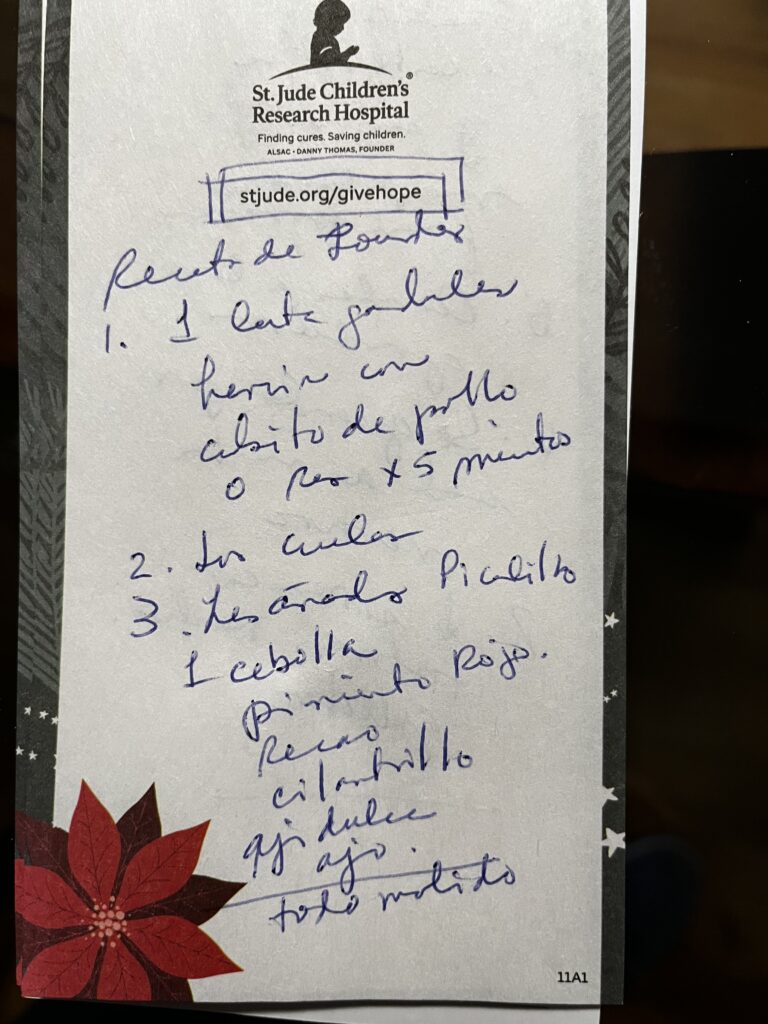 St. Jude Children's®
Research Hospital
Finding cures. Saving children.
ALSAC • DANNY THOMAS, FOUNDER
stjude.org/givehope
Receta de Lourdes
1. 1 lata gandules
hervir con
cubito de pollo
o res x 5 minutos
2. Los cuelas
3. Les añado Picadillo
1 cebolla
pimiento Rojo.
Recao
cilantrillo
aji dulce
ajo.
todo molido
11A1